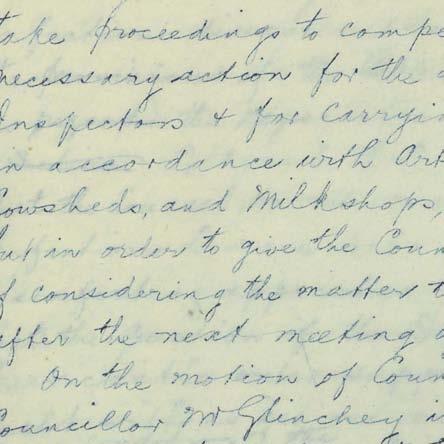 take proceedings to compe
necessary action for the
Inspectors & for carryin
in accordance with Art
Cowsheds, and Milkshops,
but in order to give the Coun
of considering the matter t
after the next meeting o
On the motion of Coun
Councillor McGlinchey i